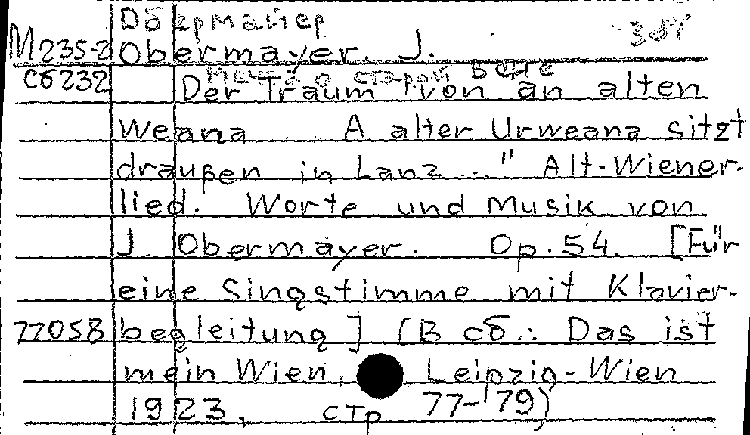 Обермайер
M235-2 Obermayer. J. 381
Сб232 Мечта о старой Вене
Der Traum von an alten
Weana A alter Urweana sitzt
draußen in Lanz..." Alt-Wiener-
lied. Worte und Musik von
J Obermayer. Op.54. [Für
eine Singstimme mit Klavier-
77058 begleitung] (В сб.: Das ist
mein Wien, Leipzig-Wien
1923, стр 77-79)